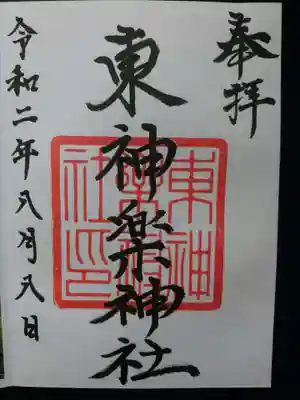 奉拝
東神楽神社
東神楽神社印
令和二年八月八日